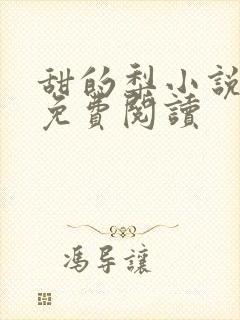 甜的梨小説
免費閱讀
馮导讓